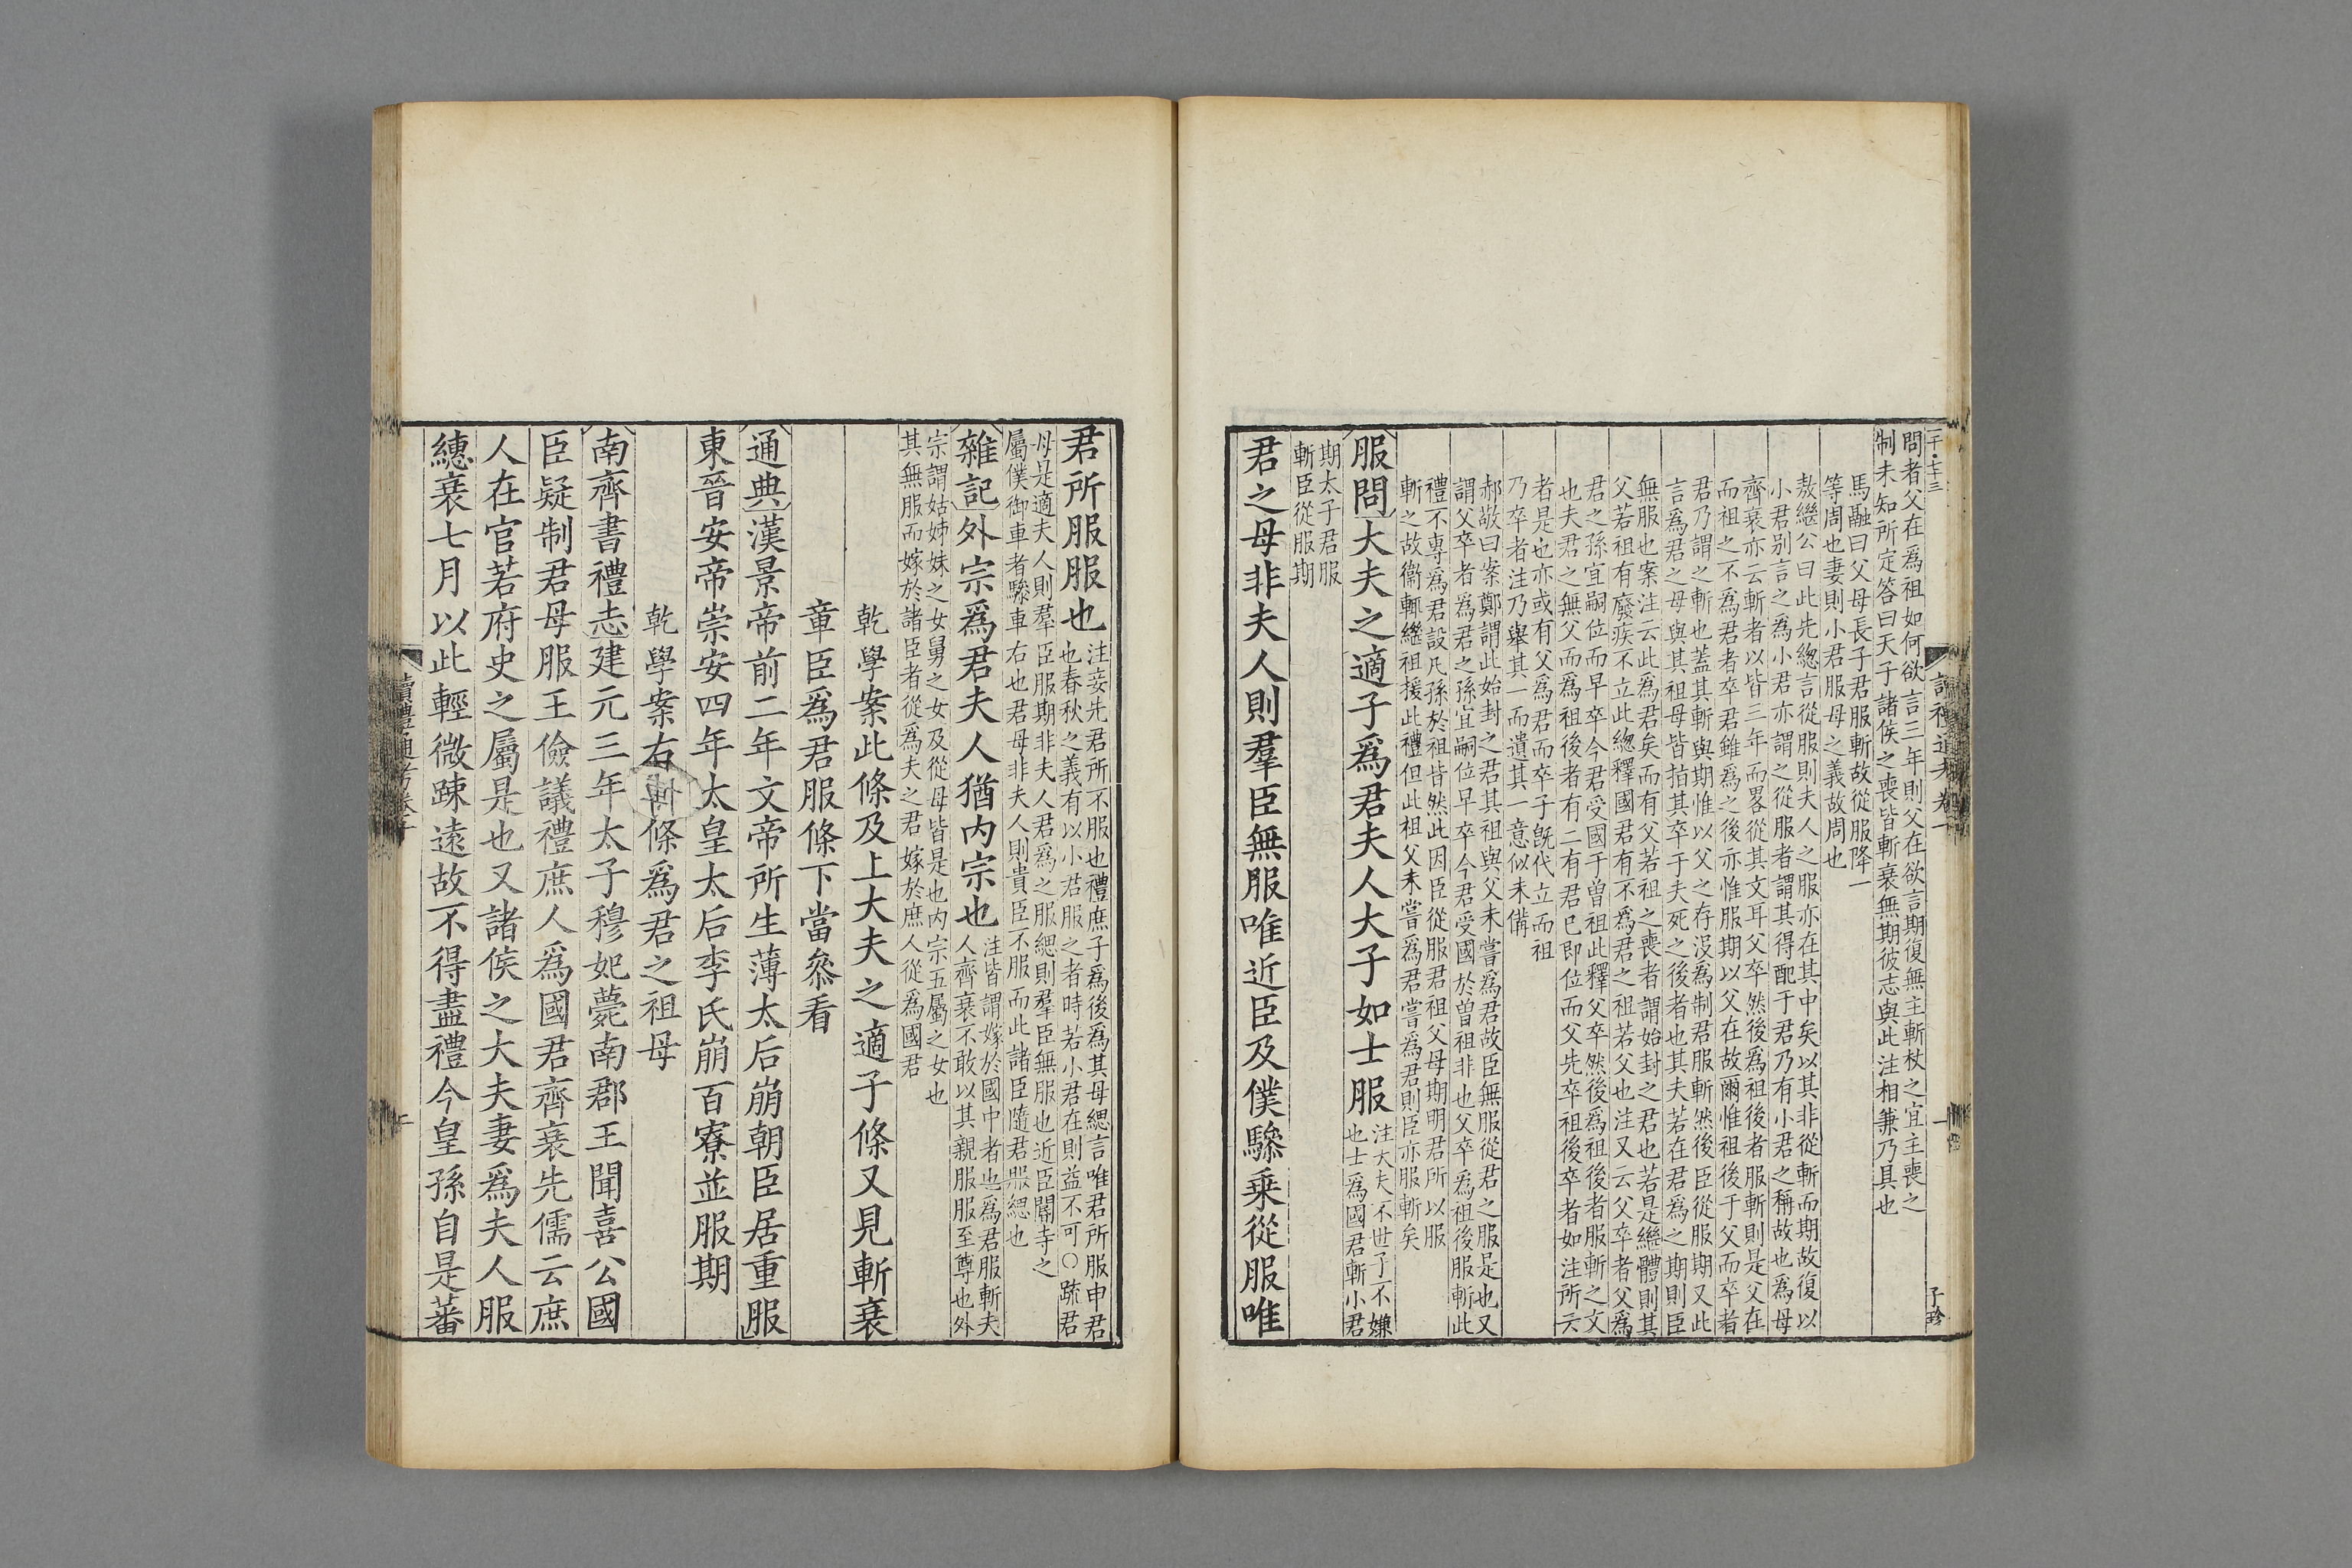 問者父在爲祖如何欲言三年則父在欲言期復無主斬杖之宜主喪之
制未知所定答曰天子諸侯之喪皆斬衰無期彼志與此注相兼乃具也
馬融曰父母長子君服斬故從服降一
等周也妻則小君服母之義故周也
敖繼公曰此先緫言從服則夫人之服亦在其中矣以其非從斬而期故復以
小君别言之爲小君亦謂之從服者謂其得配于君乃有小君之稱故也爲母
齊衰亦云斬者以皆三年而畧從其文耳父卒然後爲祖後者服斬則是父在
而祖之不爲君者卒君雖爲之後亦惟服期以父在故爾惟祖後于父而卒者
君乃謂之斬也蓋其斬與期惟以父之存沒爲制君服斬然後臣從服期又此
言爲君之母與其祖母皆㨖其卒于夫死之後者也其夫若在君爲之期則臣
無服也案注云此爲君矣而有父若祖之喪者謂始封之君也若是繼體則其
父若祖有廢疾不立此緫釋國君有不爲君之祖若父也注又云父卒者父爲
君之孫宜嗣位而早卒今君受國于曾祖此釋父卒然後爲祖後者服斬之文
也夫君之無父而爲祖後者有二有君已即位而父先卒祖後卒者如注所云
者是也亦或有父爲君而卒子旣代立而祖
乃卒者注乃舉其一而遺其一意似未備
郝敬曰案鄭謂此始封之君其祖與父未嘗爲君故臣無服從君之服是也又
謂父卒者爲君之孫宜嗣位早卒今君受國於曾祖非也父卒爲祖後服斬此
禮不專爲君設凡孫於祖皆然此因臣從服君祖父母期明君所以服
斬之故衞輒繼祖援此禮但此祖父未嘗爲君嘗爲君則臣亦服斬矣
服問大夫之適子爲君夫人大子如士服
注大夫不世子不嫌
也士爲國君斬小君
期太子君服
斬臣從服期
君之母非夫人則羣臣無服唯近臣及僕驂乘從服唯
君所服服也
注妾先君所不服也禮庶子爲後爲其母緦言唯君所服申君
也春秋之義有以小君服之者時若小君在則益不可○疏君
母是適夫人則羣臣服期非夫人君爲之服緦則羣臣無服也近臣閽寺之
屬僕御車者驂車右也君母非夫人則貴臣不服而此諸臣隨君服緦也
雜記外宗爲君夫人猶内宗也
注皆謂嫁於國中者也爲君服斬夫
人齊衰不敢以其親服服至尊也外
宗謂姑姊妹之女舅之女及從母皆是也内宗五屬之女也
其無服而嫁於諸臣者從爲夫之君嫁於庶人從爲國君
乾學案此條及上大夫之適子條又見斬衰
章臣爲君服條下當叅看
通典漢景帝前二年文帝所生薄太后崩朝臣居重服
東晉安帝崇安四年太皇太后李氏崩百寮並服期
乾學案右斬條爲君之祖母
南齊書禮志建元三年太子穆妃薨南郡王聞喜公國
臣疑制君母服王儉議禮庶人爲國君齊衰先儒云庶
人在官若府史之屬是也又諸侯之大夫妻爲夫人服
繐衰七月以此輕微踈遠故不得盡禮今皇孫自是蕃